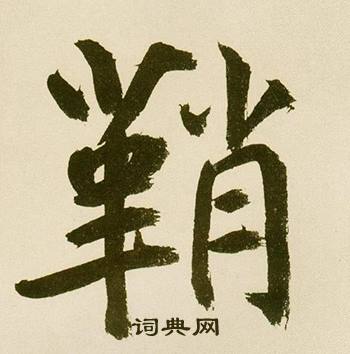 鞘
词典网